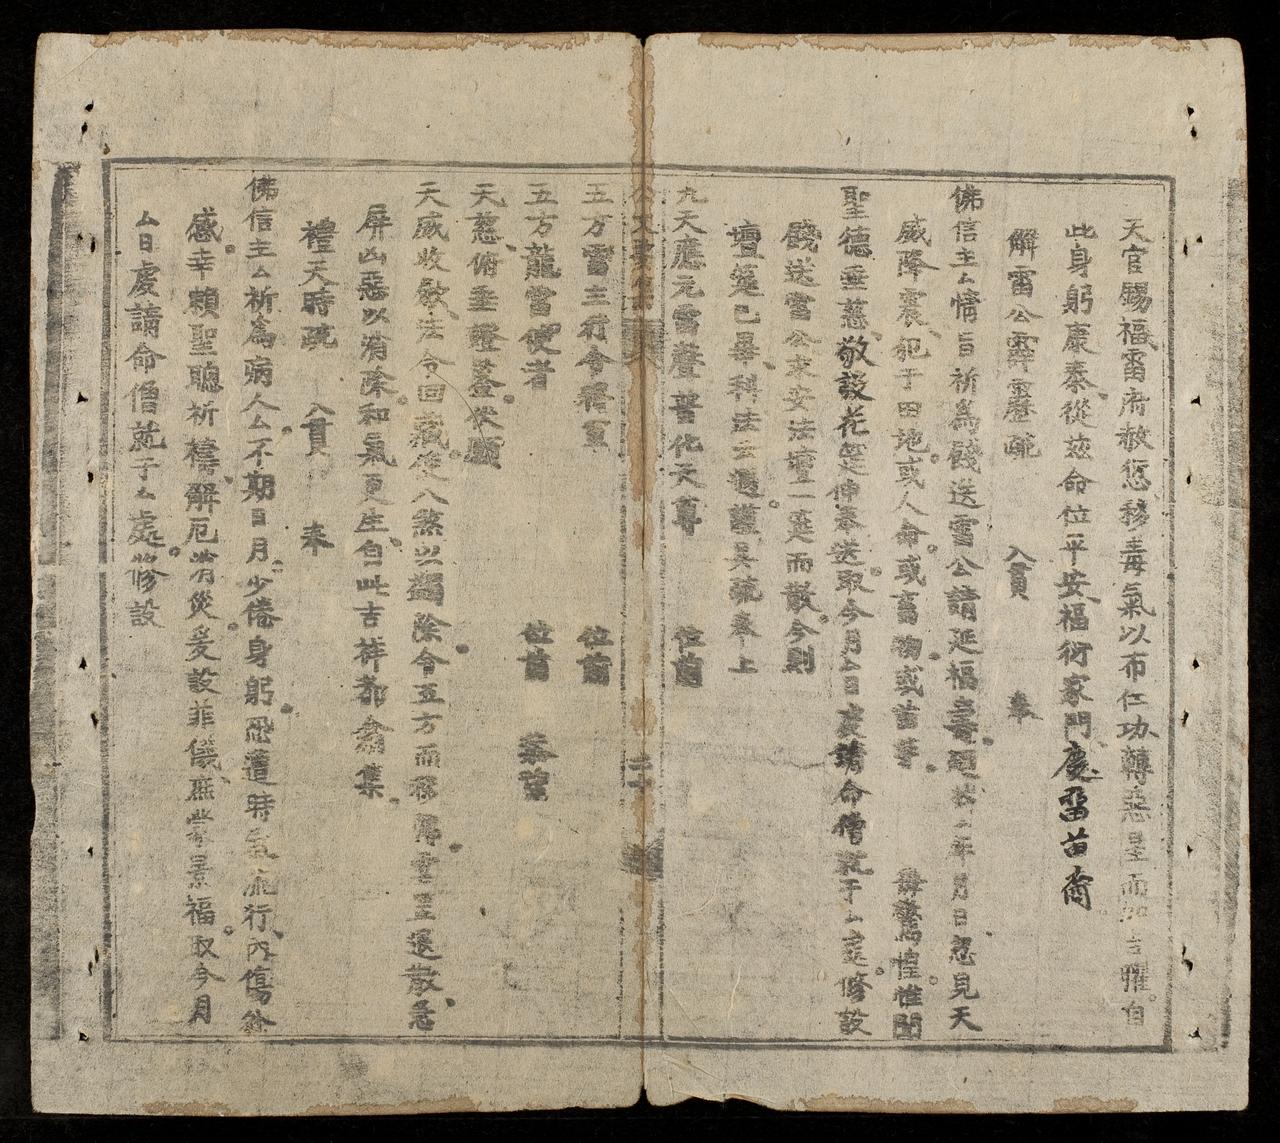 天官賜福雷府赦愆移毒氣以布仁功轉惡星而加吉曜自
此身躬康泰從茲命位平安福衍家門慶畱苗裔
解雷公霹靂疏 入貫 奉
佛信主厶情旨祈爲餞送雷公請延福壽 年月日忽見天
威降震犯于田地或人命或畜物或苗芽 驚惶惟聞
聖德垂慈敬設花筵仲奉送取今月厶日虔請命僧就于厶處修設
餞送雷公求安法壇一筵而散今則
壇筵已畢科法云週謹具疏奉上
九天應元雷聲普化天尊 位前
五方雷主行令將軍 位前
五方龍雷使者 位前 恭望
天慈俯垂證鑒伏願
天威收歛法令回藏使八煞以蠲除令五方而移 星還散惡
屏凶惡以消除和氣更生自此吉祥都翕集
禮天時疏 入貫 奉
佛信主厶祈爲病人厶不期日月少倦身躬恐遭時氣流行內傷
感幸賴聖聰祈禱解厄消災爰設菲儀庶蒙景福取今月
厶日虔請命僧就于厶處修設